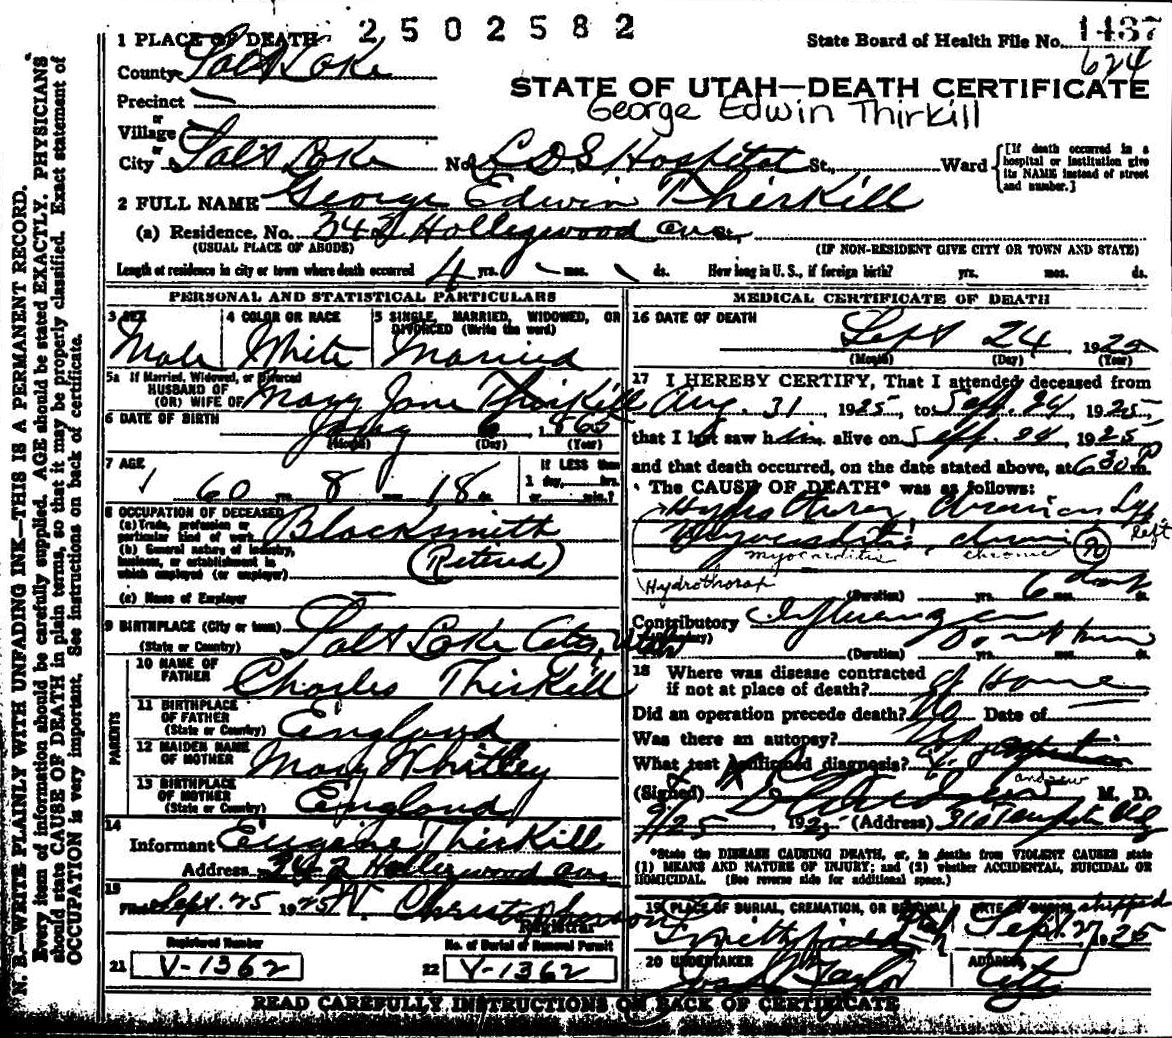 2502582
State Board of Health File No. 1437
624
STATE OF UTAH—DEATH CERTIFICATE
George Edwin Thirkill
1 PLACE OF DEATH
County Salt Lake
Precinct
or
Village
or
City Salt Lake No. L D S Hospital St., Ward
[If death occurred in a hospital or institution give its NAME instead of street and number.]
2 FULL NAME George Edwin Thirkill
(a) Residence, No. 342 Hollywood Ave St.,
(USUAL PLACE OF ABODE) (IF NON-RESIDENT GIVE CITY OR TOWN AND STATE)
Length of residence in city or town where death occurred 4 yrs. mos. ds. How long in U. S., if foreign birth? yrs. mos. ds.
PERSONAL AND STATISTICAL PARTICULARS
3 SEX
Male
4 COLOR OR RACE
White
5 SINGLE, MARRIED, WIDOWED, OR DIVORCED (Write the word)
Married
5a If Married, Widowed, or Divorced
HUSBAND OF
(OR) WIFE OF Mary Jane Thirkill
6 DATE OF BIRTH Jany 6, 1865
(Month) (Day) (Year)
7 AGE
60 yrs. 8 mos. 18 ds.
If LESS than
1 day, hrs.
or min.?
8 OCCUPATION OF DECEASED
(a) Trade, profession or
particular kind of work Blacksmith
(b) General nature of industry,
business, or establishment in
which employed (or employer) (Retired)
(c) Name of Employer
9 BIRTHPLACE (City or town)
(State or Country) Salt Lake City, Utah
PARENTS
10 NAME OF
FATHER Charles Thirkill
11 BIRTHPLACE
OF FATHER
(State or Country) England
12 MAIDEN NAME
OF MOTHER Mary Whitley
13 BIRTHPLACE
OF MOTHER
(State or Country) England
14
Informant Eugene Thirkill
Address 342 Hollywood Ave
15
Filed Sept. 25 1925 Christopherson
Registrar
Registered Number
21 V-1362
No. of Burial or Removal Permit
22 V-1362
MEDICAL CERTIFICATE OF DEATH
16 DATE OF DEATH
Sept 24 1925
(Month) (Day) (Year)
17 I HEREBY CERTIFY, That I attended deceased from
Aug. 31, 1925, to Sept. 24, 1925,
that I last saw him alive on Sept. 24, 1925
and that death occurred, on the date stated above, at 6 30 P m.
The CAUSE OF DEATH* was as follows:
left
Myocarditis, chronic 90
myocarditis chronic
Hydrothorax
(Duration) yrs. 6 mos. ds.
Contributory Influenza
(Secondary)
(Duration) yrs. mos. ds.
18 Where was disease contracted
if not at place of death? at Home
Did an operation precede death? No Date of
Was there an autopsy? No
What test confirmed diagnosis?
andrew
(Signed) M. D.
9/25, 1925 (Address)
*State the DISEASE CAUSING DEATH, or, in deaths from VIOLENT CAUSES state
(1) MEANS AND NATURE OF INJURY; and (2) whether ACCIDENTAL, SUICIDAL OR
HOMICIDAL. (See reverse side for additional space.)
19 PLACE OF BURIAL, CREMATION, OR REMOVAL
Smithfield Utah
DATE OF BURIAL shipped
Sept. 27 1925
20 UNDERTAKER
Jos. Taylor
ADDRESS
City
READ CAREFULLY INSTRUCTIONS ON BACK OF CERTIFICATE
N. B.—WRITE PLAINLY WITH UNFADING INK—THIS IS A PERMANENT RECORD.
Every item of information should be carefully supplied. AGE should be stated EXACTLY. PHYSICIANS
should state CAUSE OF DEATH in plain terms, so that it may be properly classified. Exact statement of
OCCUPATION is very important. See instructions on back of certificate.